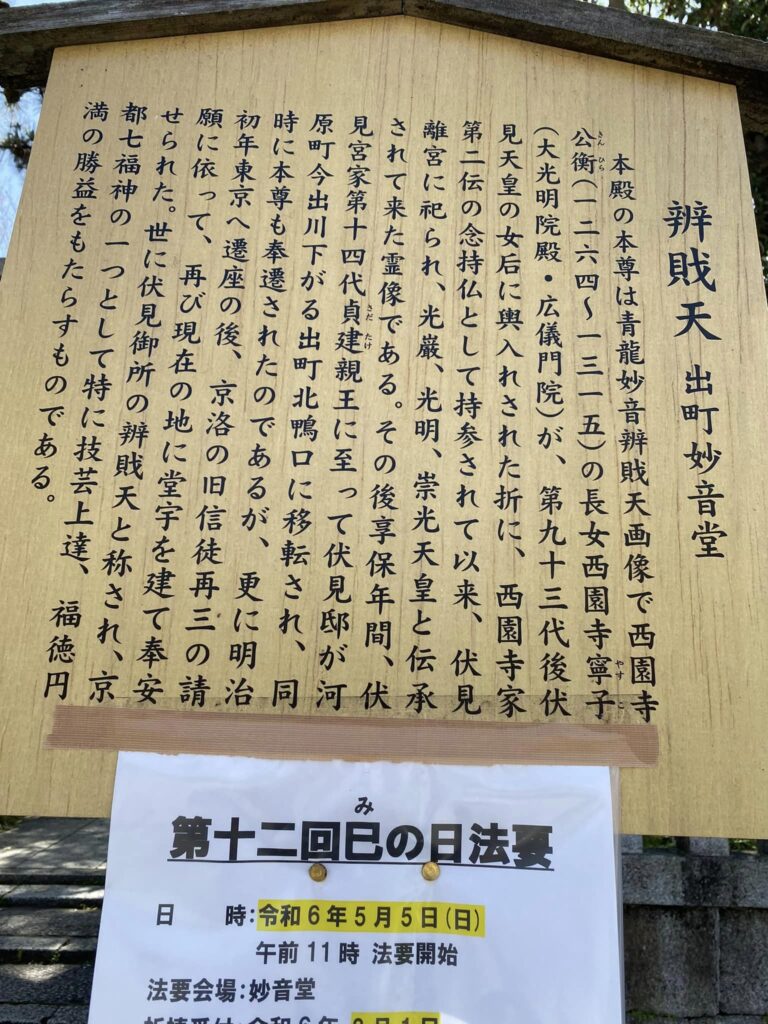 辨戝天 出町妙音堂
本殿の本尊は青龍妙音辨戝天画像で西園寺
公衡(一二六四〜一三一五)の長女西園寺寧子
(大光明院殿・広儀門院)が、第九十三代後伏
見天皇の女后に輿入れされた折に、西園寺家
第二伝の念持仏として持参されて以来、伏見
離宮に祀られ、光厳、光明、崇光天皇と伝承
されて来た霊像である。その後享保年間、伏
見宮家第十四代貞建親王に至って伏見邸が河
原町今出川下がる出町北鴨口に移転され、同
時に本尊も奉遷されたのであるが、更に明治
初年東京へ遷座の後、京洛の旧信徒再三の請
願に依って、再び現在の地に堂宇を建て奉安
せられた。世に伏見御所の辨戝天と称され、京
都七福神の一つとして特に技芸上達、福徳円
満の勝益をもたらすものである。
きん ひら
やす こ
さだ たけ
み
第十二回巳の日法要
日 時:令和6年5月5日(日)
午前11時 法要開始
法要会場:妙音堂
祈祷受付:令和6年 3月1日